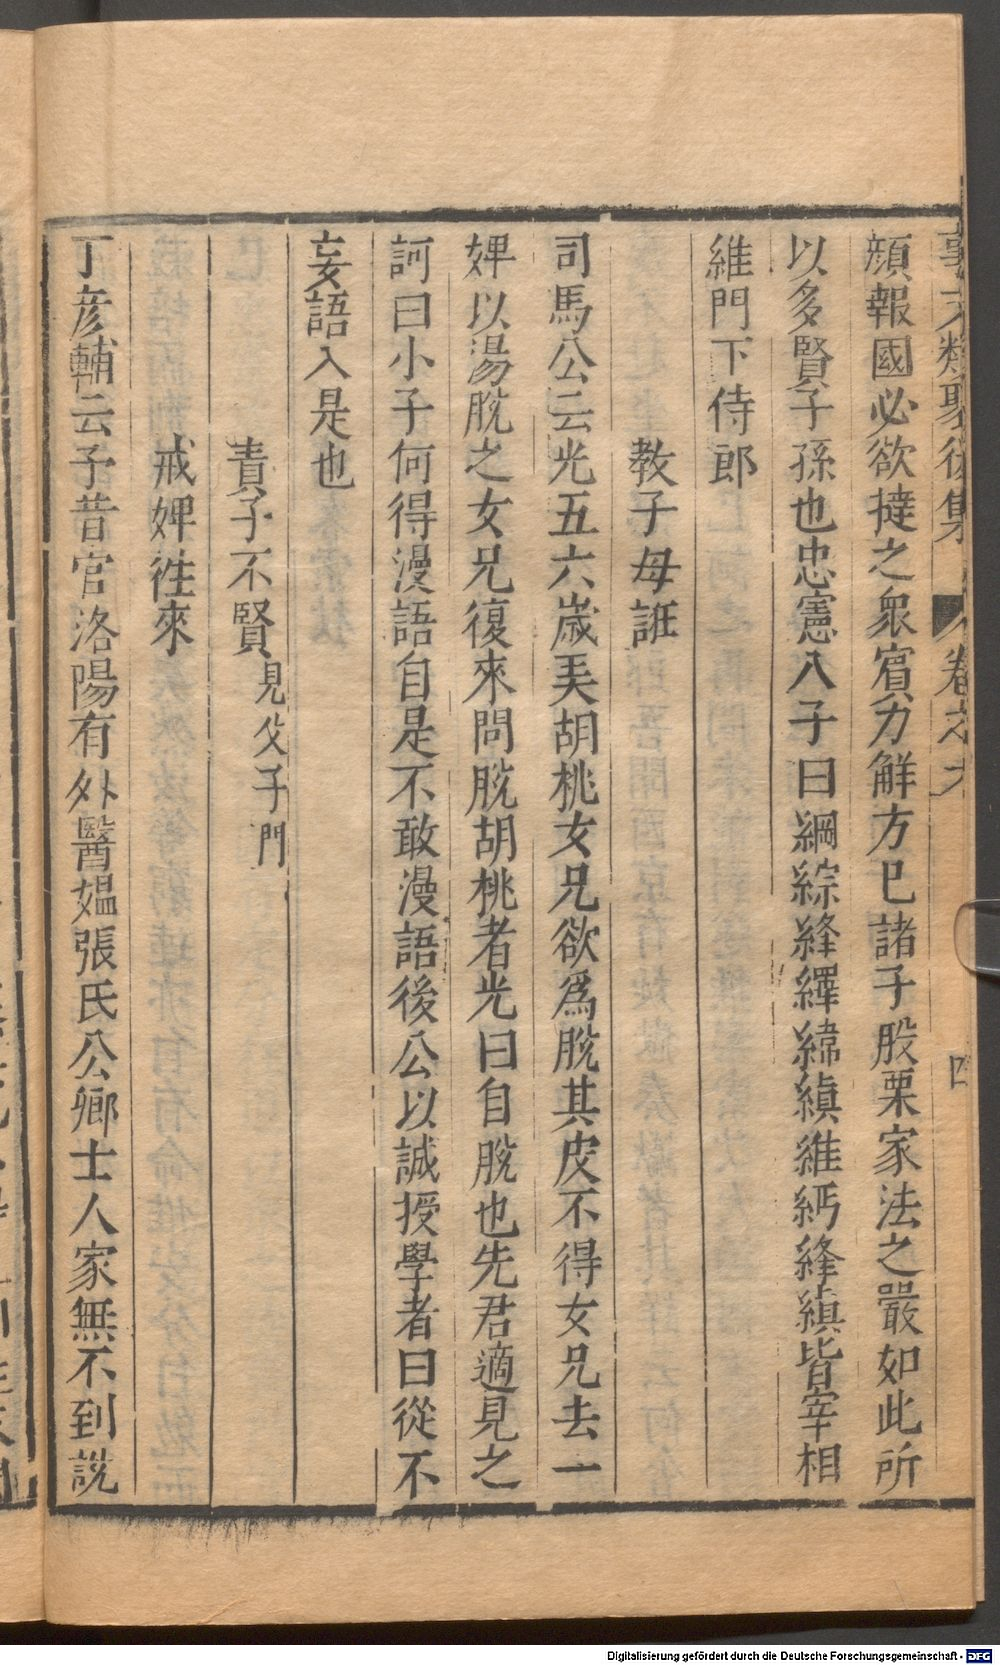 事文類聚後集 卷之六 四
顔報國必欲撻之衆賓力解方巳諸子股栗家法之嚴如此所
以多賢子孫也忠憲八子曰綱綜絳繹緯縝維緬絳縝皆宰相
維門下侍郎
教子毋誑
司馬公云光五六歲弄胡桃女兄欲爲脫其皮不得女兄去一
婢以湯脫之女兄復來問脫胡桃者光曰自脫也先君適見之
訶曰小子何得漫語自是不敢漫語後公以誠授學者曰從不
妄語入是也
責子不賢見父子門
戒婢徃來
丁彥輔云予昔官洛陽有外醫媼張氏公鄉士人家無不到説
Digitalisierung gefördert durch die Deutsche Forschungsgemeinschaft - DFG